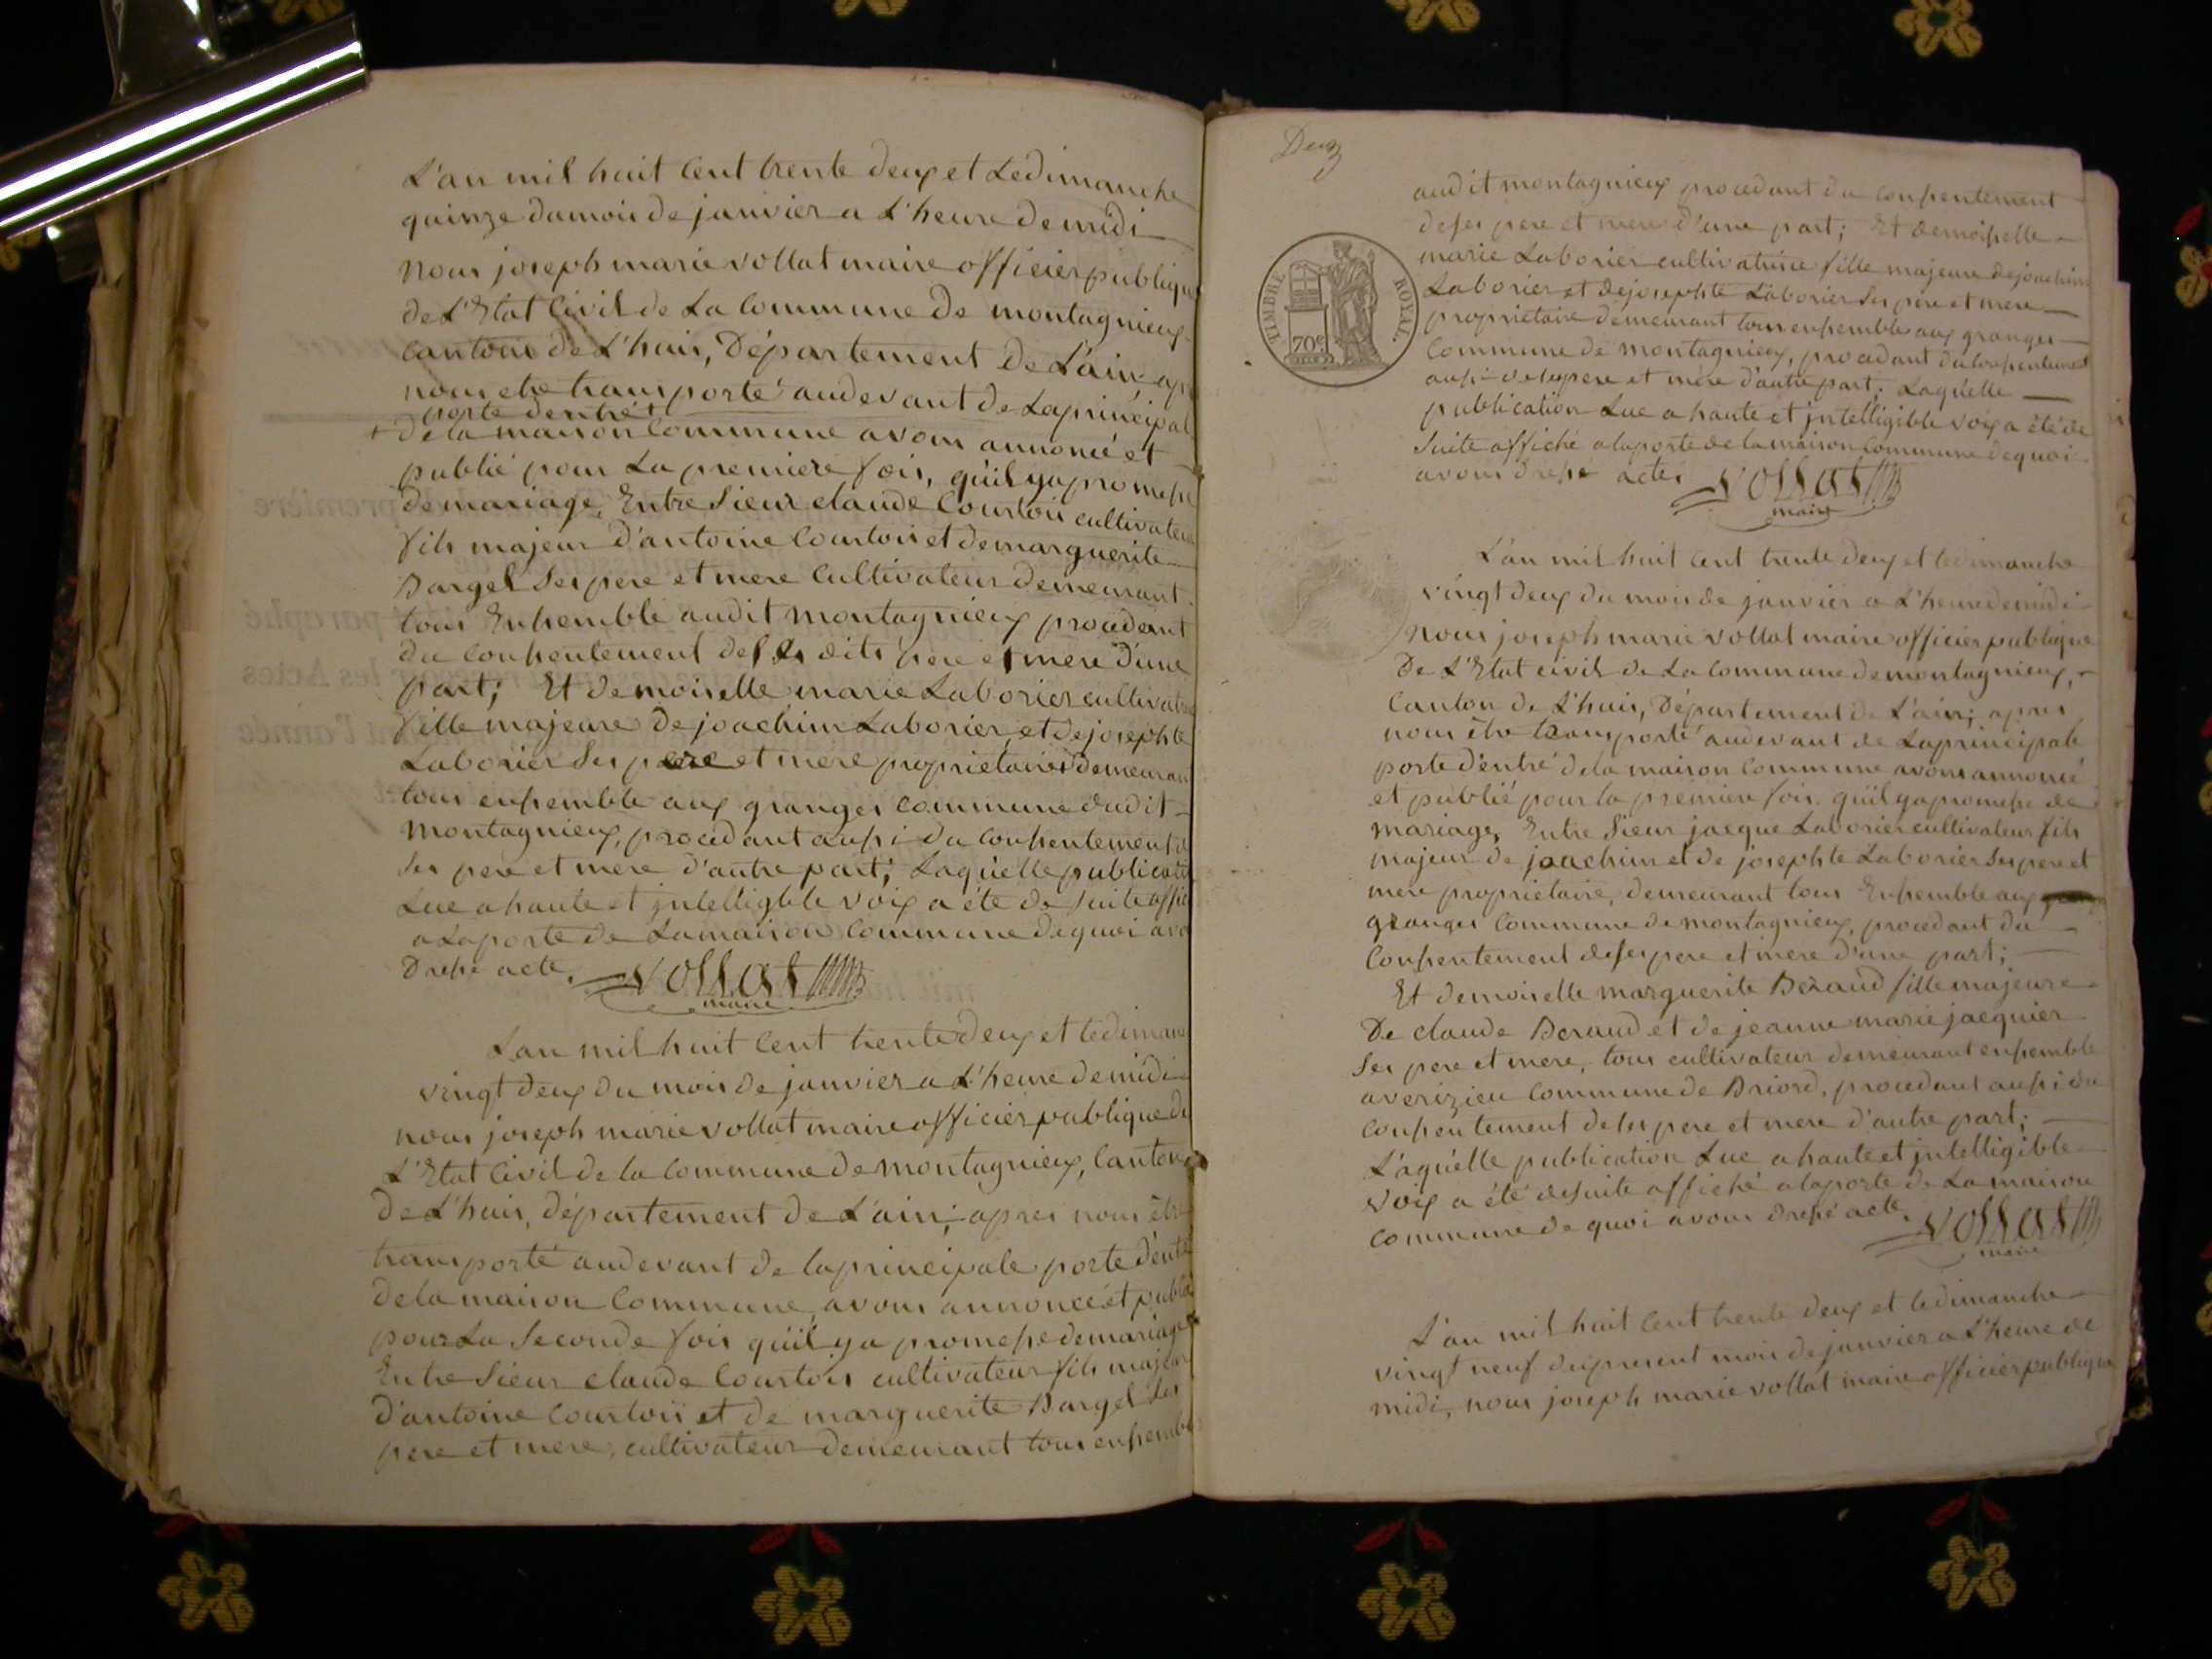 L'an mil huit Cent trente deux et Ledimanche
quinze dumois de janvier a L'heure de midi
nous joseph marie vollat maire officier publique
de L'Etat Civil de La Commune de montagnieux
Cantons de L'huis, Département de L'ain, apr
nous etre transporté audevant de Laprincipal
porte dentré +
+ de la maison Commune avons annoncé et
publié pour La premiere fois, qu'il ya promesse
de mariage, Entre Sieur claude Courtois cultivateur
fils majeur d'antoine Courtois et demarguerite
Bargel Ses pere et mere Cultivateur demeurant
tous Ensemble audit montagnieux procédant
du Consentement de ses dits pere et mere d'une
part; Et demoiselle marie Laborier cultivatrice
fille majeure de joachim Laborier, et dejosephte
Laborier Ses pere et mere propriétaires demeurant
tous ensemble aux granges commune dudit
montagnieux, procédant aussi du Consentement d
Ses pere et mere d'autre part; Laquelle publicati
Lue a haute et jntelligible voix a été de suite affic
a Laporte de Lamaison Commune dequoi avo
Dressé acte. vollat
maire
L'an mil huit Cent trente deux et ledimanc
vingt deux du mois de janvier a L'heure demidi
nous joseph marie vollat maire officier publique de
L'Etat Civil de la Commune de montagnieux, Canton
de L'huis, département de L'ain; apres nous être
transporté audevant de laprincipale porte d'entré
dela maison Commune, avons annoncé et publié
pour La Seconde fois qu'il ya promesse demariage
Entre Sieur claude Courtois cultivateur fils majeur
d'antoine Courtois et de marguerite Bargel Ses
pere et mere, cultivateur demeurant tous ensemble
Deux
audit montagnieux procédant du consentement
deses pere et mere d'une part; Et demoiselle
marie Laborier cultivatrice fille majeure dejoachim
Laborier et dejosephte Laborier Ses pere et mere
propriétaire demeurant tous ensemble aux granges
Commune de montagnieux, procédant du Consentement
aussi de ses pere et mere d'autre part; Laquelle
publication Lue a haute et jntelligible voix a été de
Suite affiché a laporte de la maison Commune dequoi
avons dressé actes vollat
maire
TIMBRE ROYAL.
70c
L'an mil huit Cent trente deux et ledimanche
vingt deux du mois de janvier a L'heure demidi
nous joseph marie vollat maire officier publique
De L'Etat civil de La Commune demontagnieux,
Canton de L'huis, Département de L'ain; apres
nous être transporté audevant de Laprincipale
porte d'entré dela maison Commune avons annoncé
et publié pour la premiere fois. qu'il ya promesse de
mariage, Entre Sieur jacque Laborier cultivateur fils
majeur de joachim et de josephte Laborier Ses pere et
mere propriétaire, demeurant tous Ensemble aux
granges Commune de montagnieux, procédant du
Consentement deses pere et mere d'une part;
Et demoiselle marguerite Béraud fille majeure
De claude Beraud et de jeanne marie jacquier
Ses pere et mere, tous cultivateur demeurant ensemble
a verizieu Commune de Briord, procédant aussi du
Consentement de ses pere et mere d'autre part;
L'aquelle publication Lue a haute et jntelligible
voix a été desuite affiché a laporte de La maison
Commune de quoi avons dressé acte. vollat
maire
L'an mil huit Cent trente deux et ledimanche
vingt neuf du present mois de janvier a L'heure de
midi, nous joseph marie vollat maire officier publique